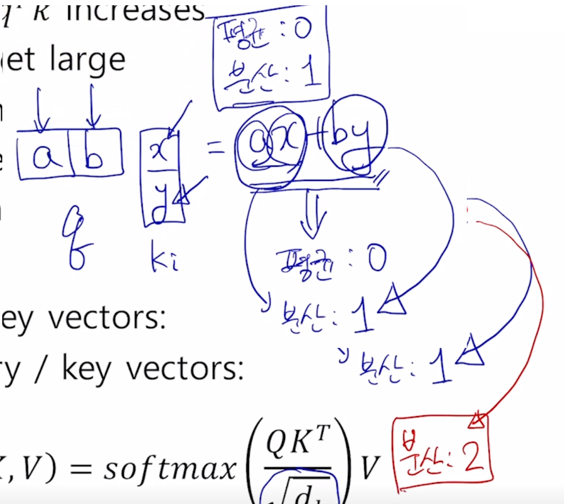 q k increases
평균: 0
분산: 1
et large
a b
x
y
= ax + by
q
ki
평균: 0
분산: 1
분산: 1
ey vectors:
ry / key vectors:
, V) = softmax(QK^T / √d) V
분산: 2